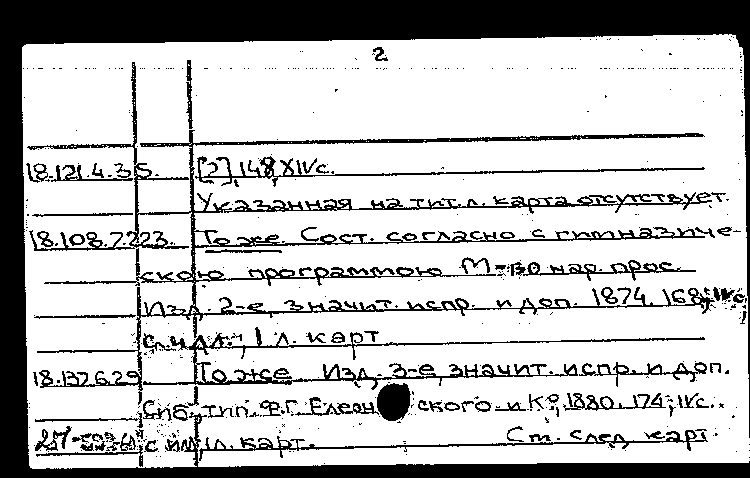 2
18.121.4.35. [2], 148, XIV с.
Указанная на тит. л. карта отсутствует.
18.108.7.223. То же Сост. согласно с гимназиче-
скою программою М-во нар. прос.
Изд. 2-е, значит. испр. и доп. 1874. 168, IV с.
1 л. карт
18.137.6.29 То же Изд. 3-е, значит. испр. и доп.
Спб., тип. Ф.Г. Елеонского и К°, 1880. 174; IV с..
с ил, 1 л. карт. См. след. карт.